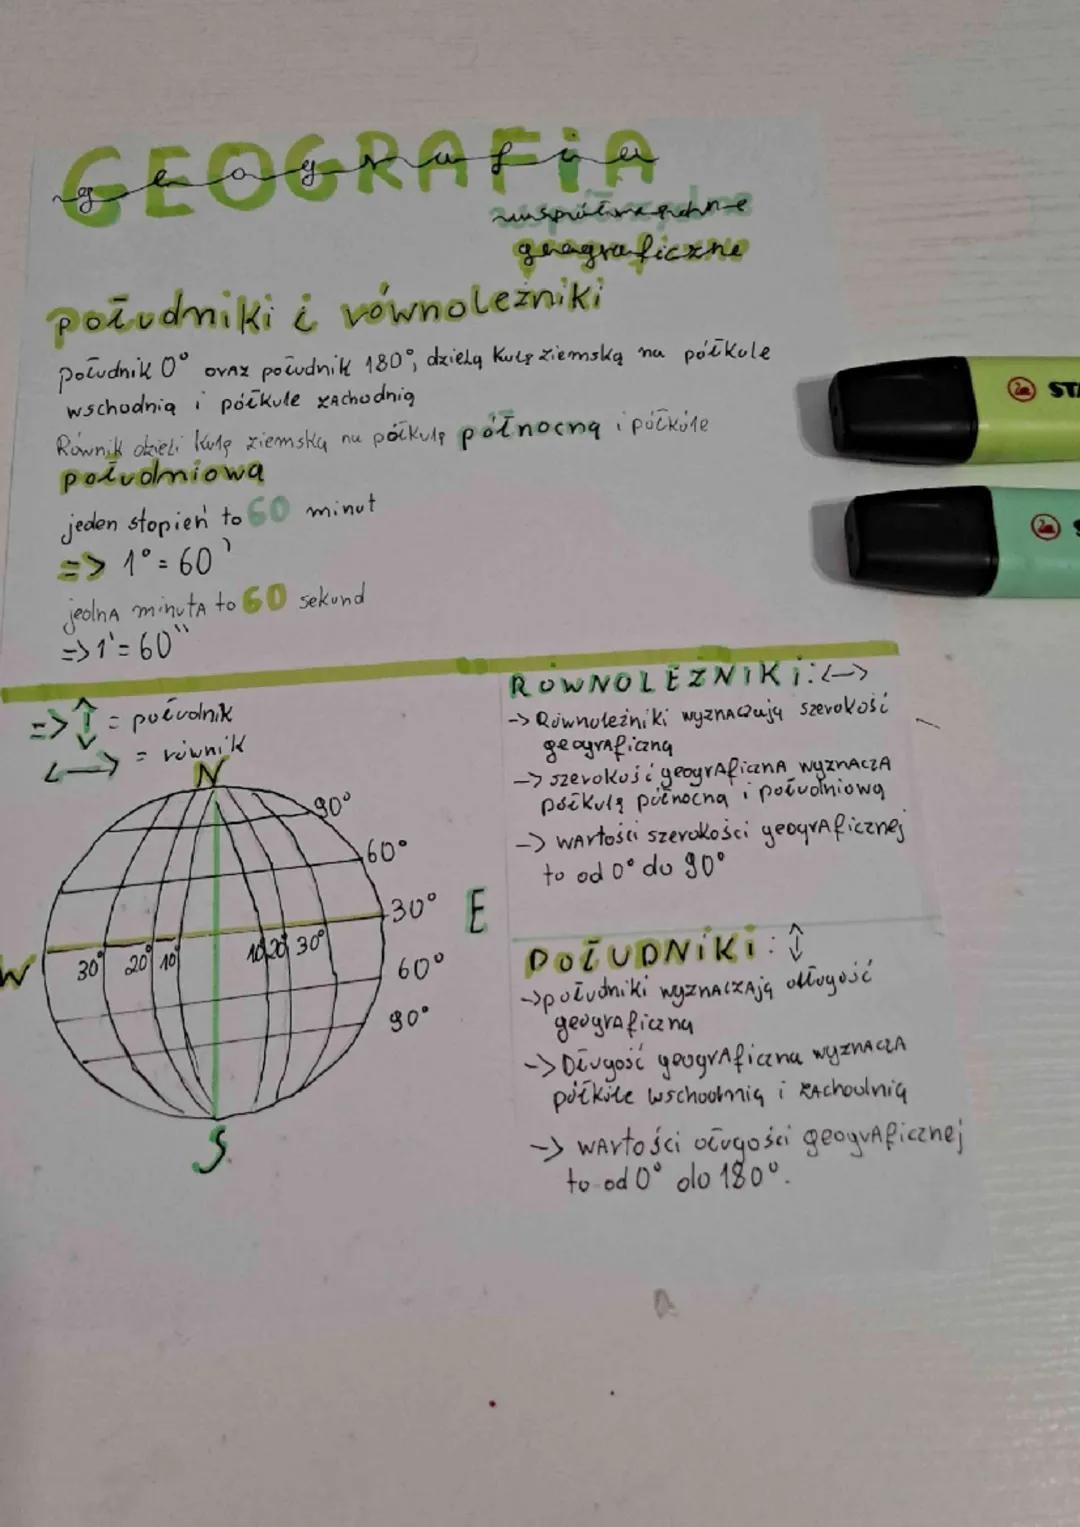 GEOGRAFIA
geografia
współrzędne
geograficzne
południki i równoleżniki
południk 0° oraz południk 180°, dzielą kulę ziemską na półkule
wschodnią i półkule zachodnią
Równik dzieli kulę ziemską na półkulę północną i półkule
południową
jeden stopień to 60 minut
=> 1° = 60'
jedna minuta to 60 sekund
=> 1' = 60''
=> ↕ = południk
<—> = równik
N
90°
60°
30°
E
W
30° 20° 10° 10° 20° 30°
60°
90°
S
RÓWNOLEŻNIKI: <—>
-> Równoleżniki wyznaczują szerokość
geograficzną
-> szerokość geograficzna wyznacza
półkulę północną i południową
-> wartości szerokości geograficznej
to od 0° do 90°
POŁUDNIKI: ↕
-> południki wyznaczają długość
geograficzną
-> Długość geograficzna wyznacza
półkule wschodnią i zachodnią
-> wartości długości geograficznej
to od 0° do 180°.
STA
S